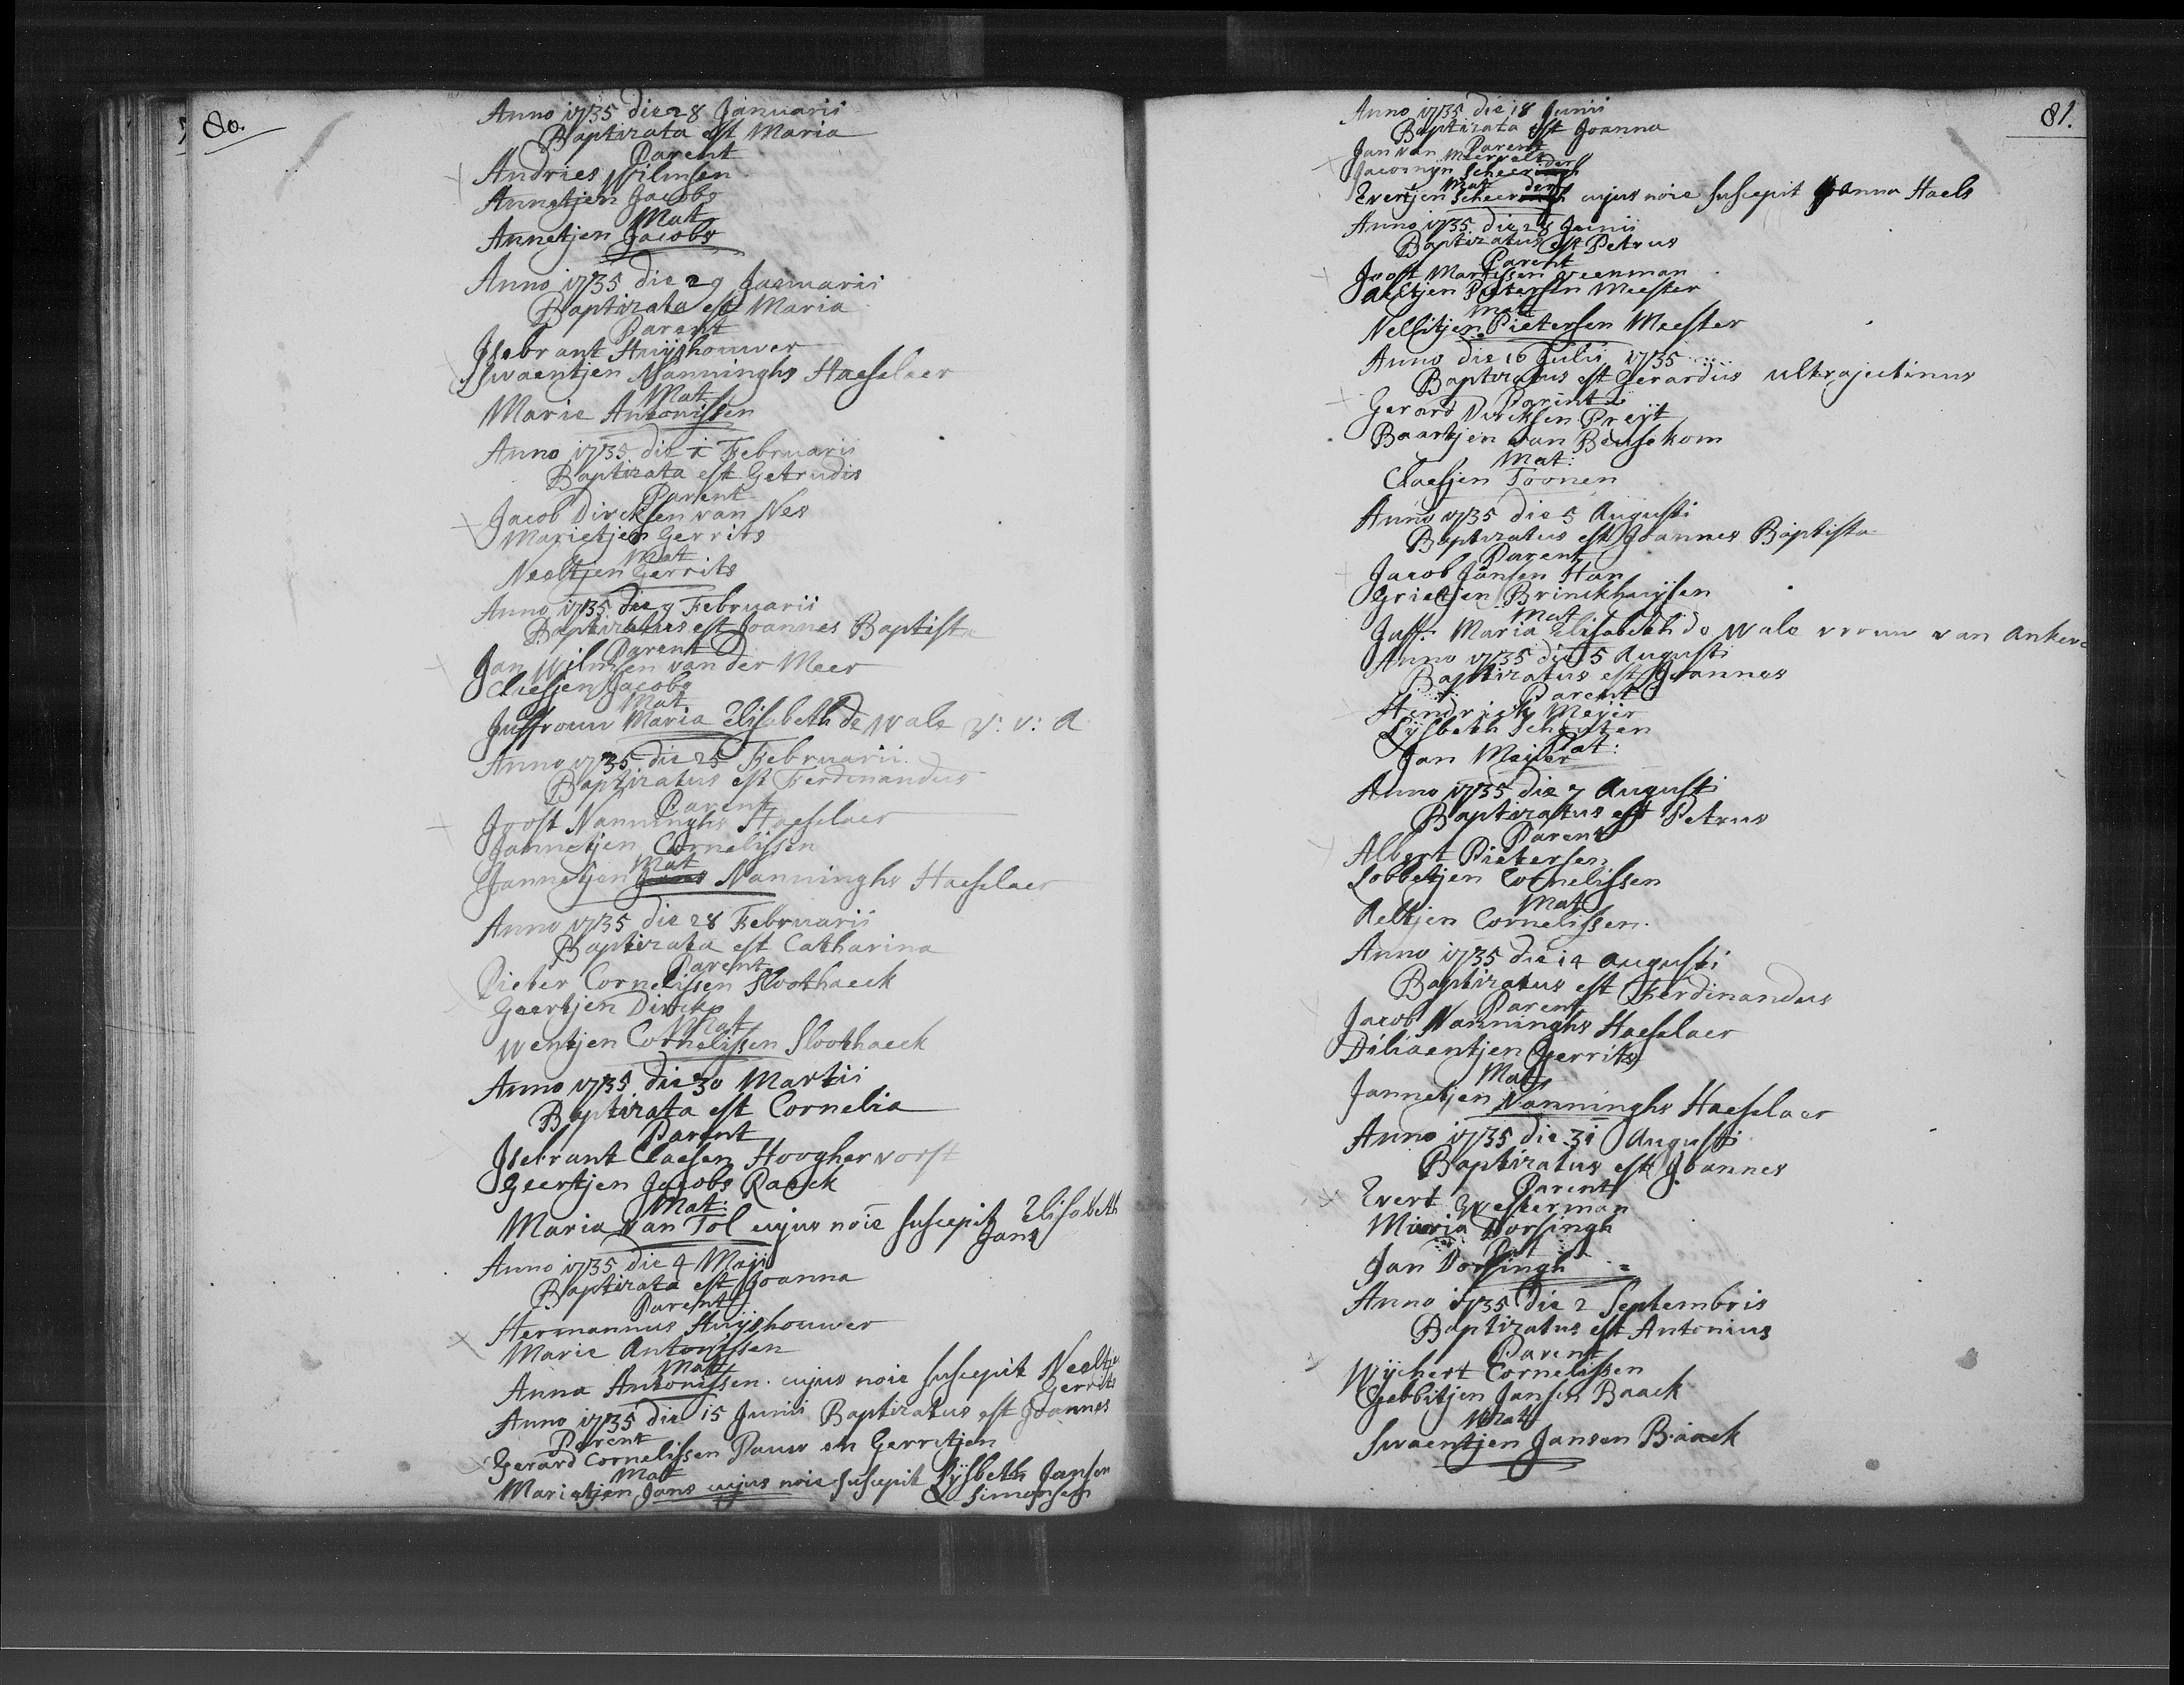 80.
Anno 1735 die 28 Januarii
Baptizata est Maria
Parent
Andries Wilmsen
Annetjen Jacobs
Mat
Annetjen Jacobs
Anno 1735 die 29 Januarii
Baptizata est Maria
Parent
Isebrant Huijshouwer
Swaentjen Nanninghs Haeselaer
Mat
Marie Antonissen
Anno 1735 die 1 Februarii
Baptizata est Getrudis
Parent
Jacob Dircksen van Nes
Marietjen Gerrits
Mat
Neeltjen Gerrits
Anno 1735 die 9 Februarii
Baptizatus est Joannes Baptista
Parent
Jan Wilmsen van der Meer
Claesjen Jacobs
Mat
Juffrouw Maria Elisabeth de Wale v: v: A
Anno 1735 die 25 Februarii
Baptizatus est Ferdinandus
Parent
Joost Nanninghs Haeselaer
Jannetjen Cornelissen
Mat
Jannetjen Nanninghs Haeselaer
Anno 1735 die 28 Februarii
Baptizata est Catharina
Parent
Pieter Cornelissen Sloothaeck
Geertjen Dircks
Mat
Wentjen Cornelissen Sloothaeck
Anno 1735 die 30 Martii
Baptizata est Cornelia
Parent
Isebrant Claesen Hooghervorst
Geertjen Jacobs Raeck
Mat:
Maria van Tol cujus noie suscepit Elisabeth
Jans
Anno 1735 die 4 Maji
Baptizata est Joanna
Parent
Hermannus Huijshouwer
Marie Antonissen
Mat
Anna Antonissen. cujus noie suscepit Neeltje
Gerrits
Anno 1735 die 15 Junii Baptizatus est Joannes
Parent
Gerard Cornelissen Pauw en Gerritjen
Mat
Marietjen Jans cujus noie suscepit Lijsbeth Jansen
Simonsen
81.
Anno 1735 die 18 Junii
Baptizata est Joanna
Parent
Jan van Meervelt
Jacomijn Scheerder
Mat
Evertjen Scheerder cujus noie suscepit Joanna Haels
Anno 1735 die 28 Junii
Baptizatus est Petrus
Parent
Joost Martissen Veenman
Aeltjen Pietersen Meester
Mat
Nellitjen Pietersen Meester
Anno die 16 Julii 1735
Baptizatus est Gerardus ultrajectinus
Parent
Gerard Dircksen Preijt
Baartjen van Beusekom
Mat:
Claesjen Toonen
Anno 1735 die 5 Augusti
Baptizatus est Joannes Baptista
Parent
Jacob Jansen Han
Grietjen Brinckhuijsen
Mat
Juff: Maria Elisabeth de Wale vrouw van Ankeve
Anno 1735 die 5 Augusti
Baptizatus est Joannes
Parent
Hendrick Meijer
Lijsbeth Schouten
Pat:
Jan Meijer
Anno 1735 die 7 Augusti
Baptizatus est Petrus
Parent
Albert Pietersen
Lobbetjen Cornelissen
Mat
Aeltjen Cornelissen.
Anno 1735 die 14 Augusti
Baptizatus est Ferdinandus
Parent
Jacob Nanninghs Haeselaer
Diliaentjen Gerrits
Mat
Jannetjen Nanninghs Haeselaer
Anno 1735 die 31 Augusti
Baptizatus est Joannes
Parent
Evert Westerman
Maria Dorsingh
Pat
Jan Dorsingh
Anno 1735 die 2 Septembris
Baptizatus est Antonius
Parent
Wijchert Cornelissen
Gebbitjen Jansen Baack
Mat
Swaentjen Jansen Baack